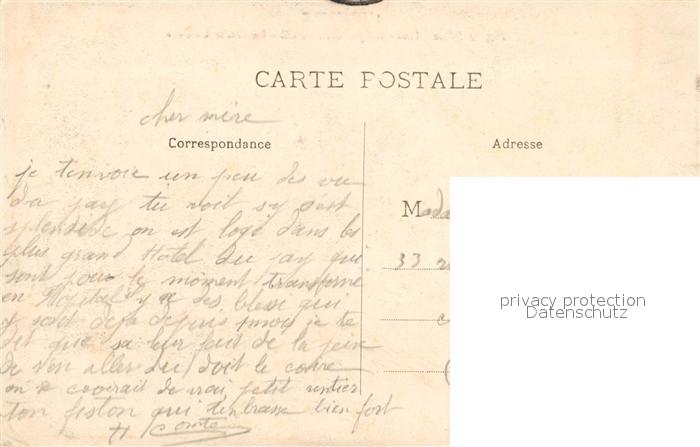 CARTE POSTALE
cher mère
Correspondance
Adresse
je tenvoie un peu des vu
da pay tu voit sy sest
splendide on est logé dans les
plus grand Hotel du pay qui
sont pour le moment transformé
en Hopital y a des blessé qui
y sont deja depuis mois je te
dit que sa leur fait de la peine
de s'en aller du doit le
on croirait de vrai petit rentier
ton fiston qui tenbrasse bien fort
H Comte
Mada
33
privacy protection
Datenschutz